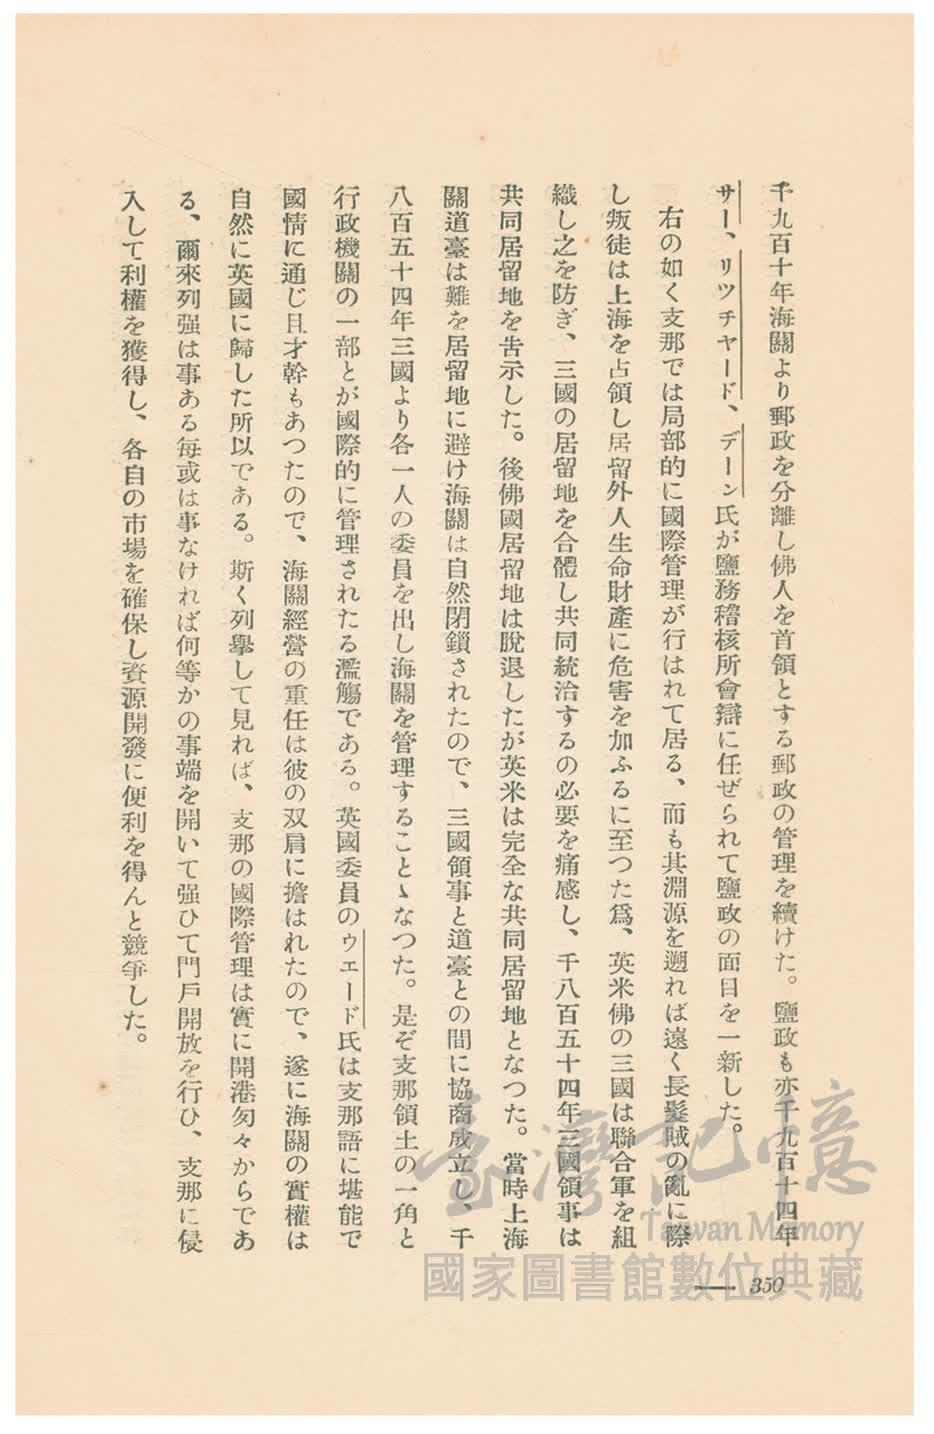 千九百十年海關より郵政を分離し佛人を首領とする郵政の管理を續けた。鹽政も亦千九百十四年
サー、リツチヤード、デーン氏が鹽務稽核所會辯に任ぜられて鹽政の面目を一新した。
右の如く支那では局部的に國際管理が行はれて居る、而も其淵源を遡れば遠く長髮賊の亂に際
し叛徒は上海を占領し居留外人生命財產に危害を加ふるに至つた爲、英米佛の三國は聯合軍を組
織し之を防ぎ、三國の居留地を合體し共同統治するの必要を痛感し、千八百五十四年三國領事は
共同居留地を吿示した。後佛國居留地は脫退したが英米は完全な共同居留地となつた。當時上海
關道臺は難を居留地に避け海關は自然閉鎖されたので、三國領事と道臺との間に協商成立し、千
八百五十四年三國より各一人の委員を出し海關を管理することゝなつた。是ぞ支那領土の一角と
行政機關の一部とが國際的に管理されたる濫觴である。英國委員のウエード氏は支那語に堪能で
國情に通じ且才幹もあつたので、海關經營の重任は彼の双肩に擔はれたので、遂に海關の實權は
自然に英國に歸した所以である。斯く列擧して見れば、支那の國際管理は實に開港匆々からであ
る、爾來列强は事ある每或は事なければ何等かの事端を開いて强ひて門戶開放を行ひ、支那に侵
入して利權を獲得し、各自の市場を確保し資源開發に便利を得んと競爭した。
350
臺灣記憶
Taiwan Memory
國家圖書館數位典藏